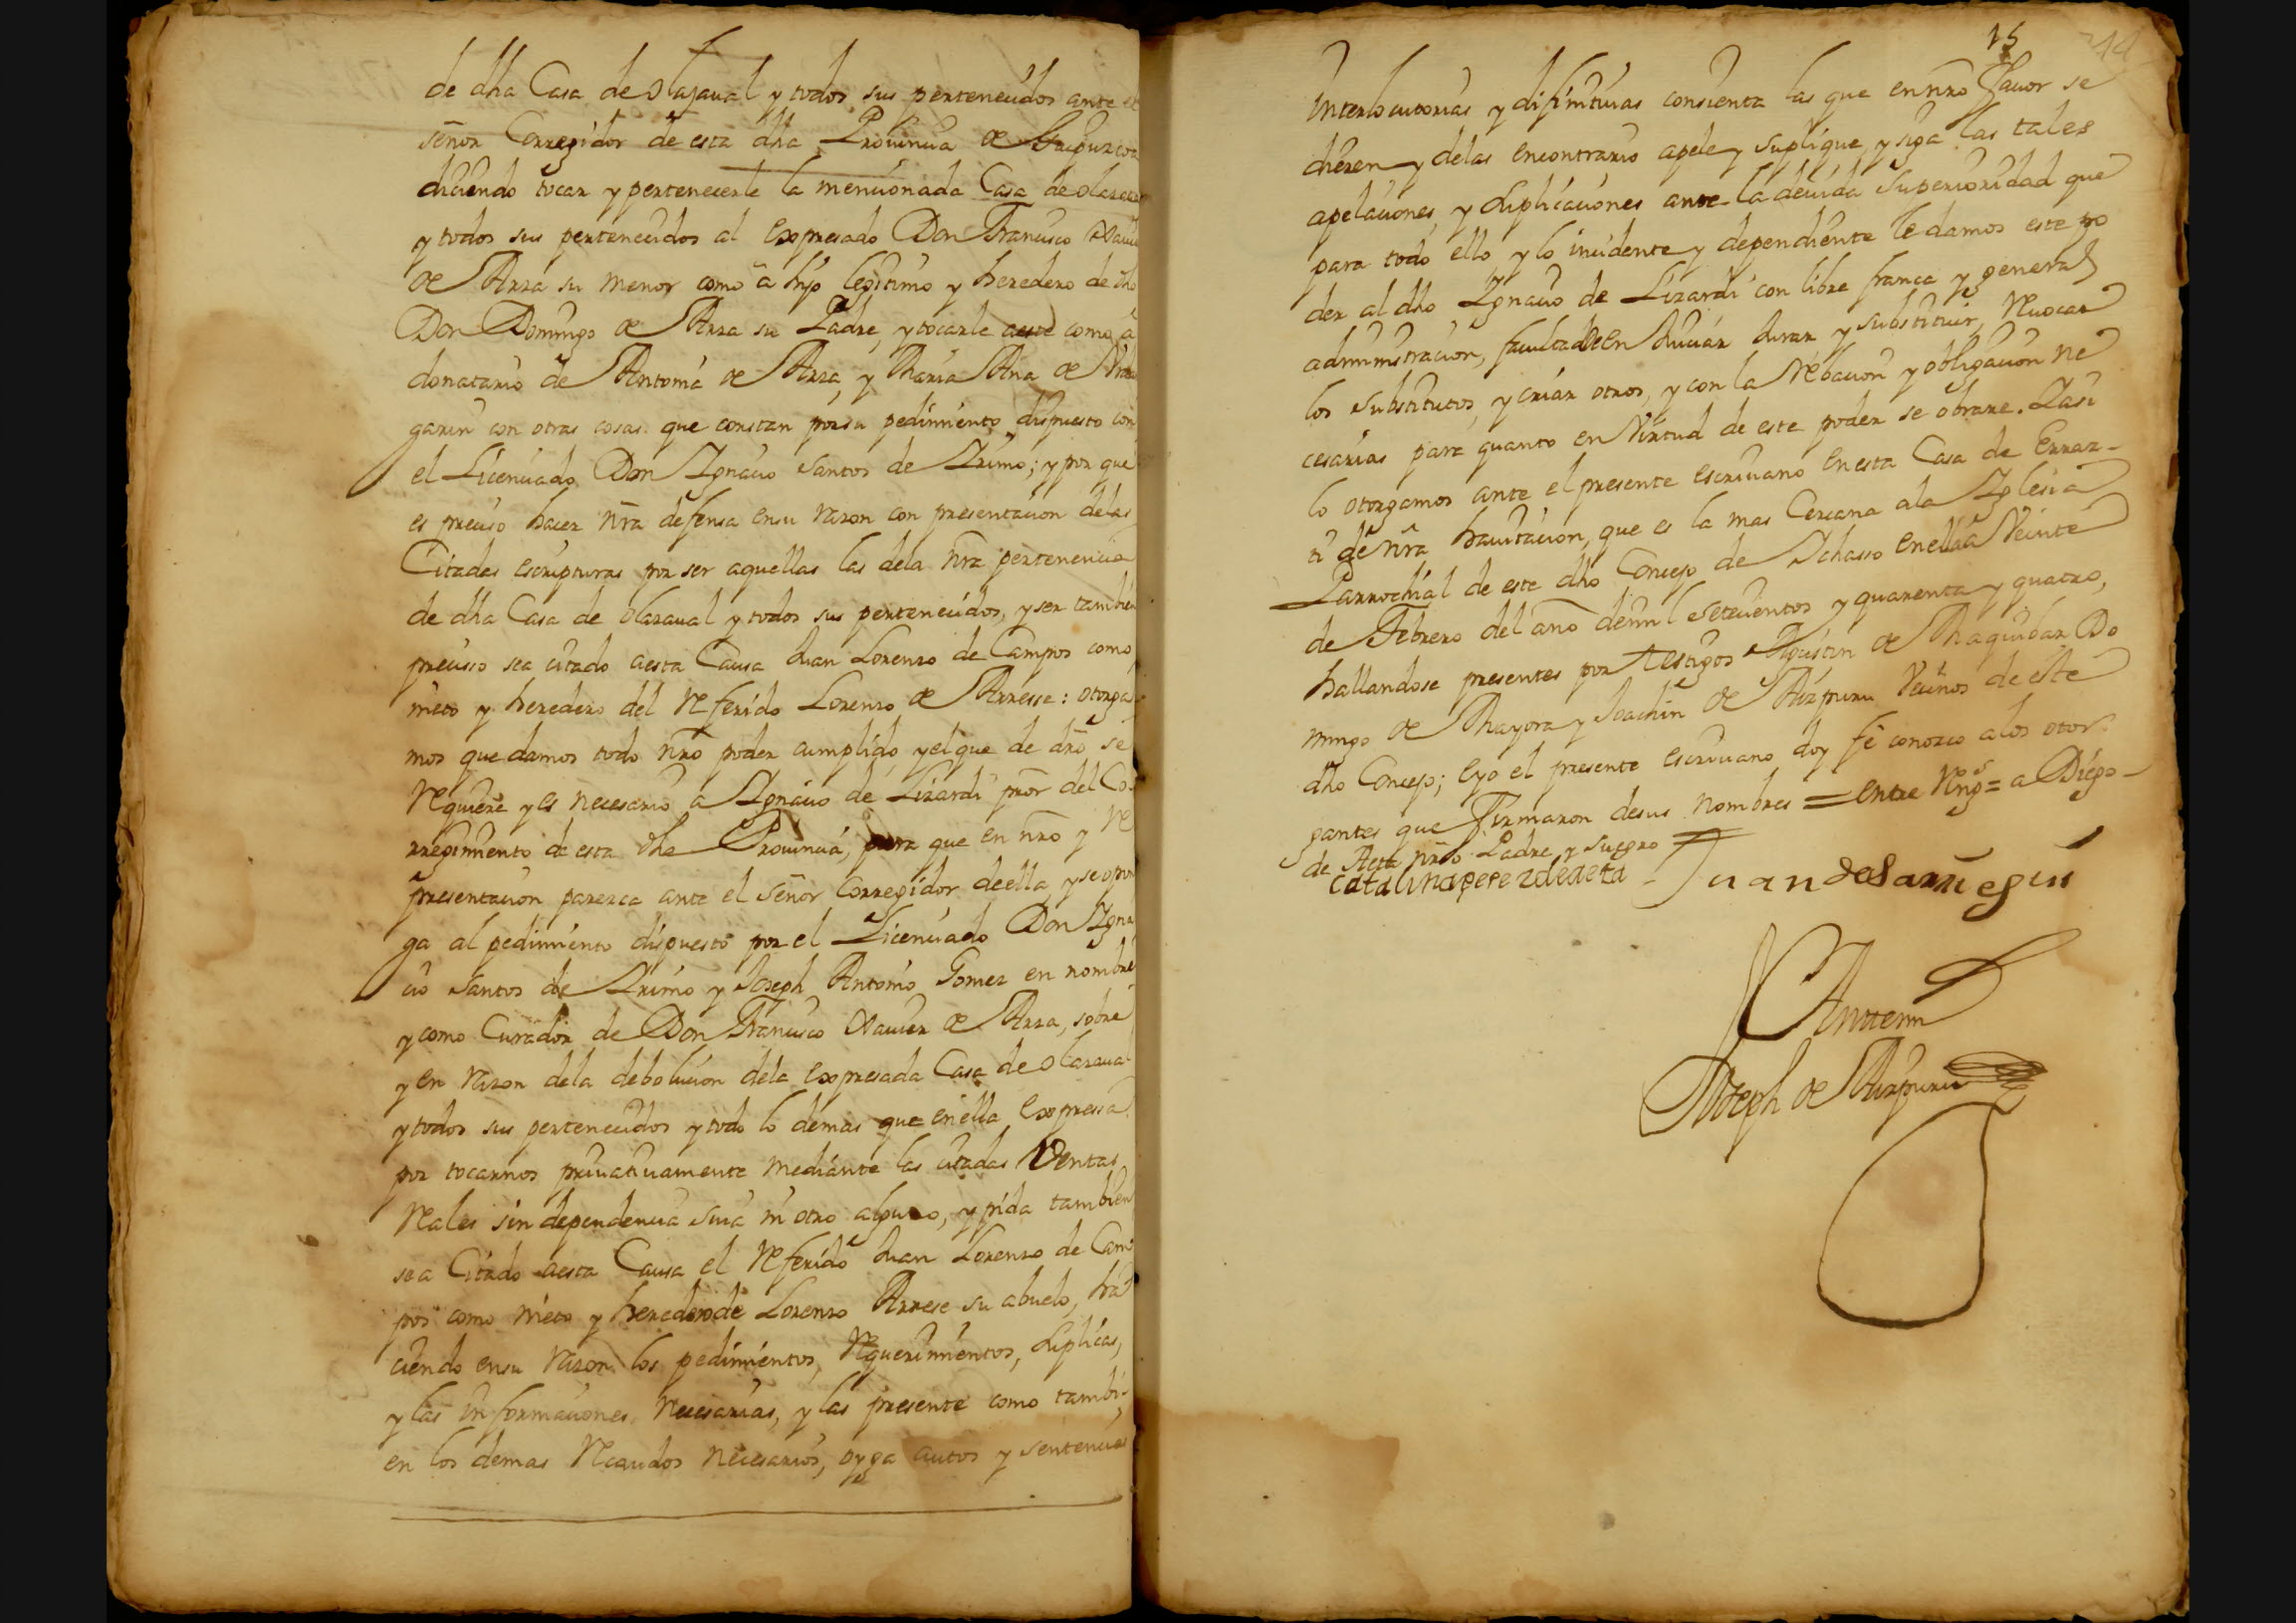 de dha Casa de Olaraval y todos sus pertenecidos ante el
señor Corregidor de esta dha Provincia de Guipuzcoa
diciendo tocar y pertenecerle la mencionada Casa de Olaraval
y todos sus pertenecidos al expresado Don Francisco Xavier
de Arza su menor como â hijo lexitimo y heredero de dho
Don Domingo de Arza su Padre, y tocarle aeste como â
donatario de Antonia de Arza, y Maria Ana de
garin con otras cosas que constan por su pedimiento dispuesto con
el Licenciado Don Ignacio Santos de Arimo; y por que
es preciso hacer nrã defensa ensu razon con presentacion delas
Citadas escripturas por ser aquellas las dela nrã pertenencia
de dha Casa de Olaraval y todos sus pertenecidos, y ser tambien
precisso sea citado aesta Causa Juan Lorenzo de Campos como
nieto y heredero del Referido Lorenzo de Arresse: otorga
mos que damos todo nrõ poder cumplido, y el que de drõ se
Requiere y es necesario â Ignacio de Lizardi prõr del Co
rregimiento de esta dha Provincia, para que en nrõ y Re
presentacion parezca ante el señor Corregidor deella, y se opon
ga al pedimiento dispuesto por el Licenciado Don Igna
cio Santos de Arimo y Joseph Antonio Gomez en nombre
y como Curador de Don Francisco Xavier de Arza, sobre
y en razon dela debolucion dela expresada Casa de Olaraval
y todos sus pertenecidos y todo lo demas que en ella expressa
por tocarnos privativamente mediante las citadas Ventas
Reales sin dependencia suia ni otro alguno, y pida tambien
sea Citado aesta Causa el Referido Juan Lorenzo de Cam
pos como nieto y herederode Lorenzo Arrese su abuelo, ha
ciendo ensu razon los pedimientos, Requerimientos, suplicas,
y las informaciones necesarias, y las presente como tambi
en los demas Recaudos necesarios, oyga autos y sentencias
15
44
Interlocutorias y difinitivas consienta las que en nrõ favor se
dieren y delas encontrario apele y suplique, y siga las tales
apelaciones, y suplicaciones ante la devida Superioridad que
para todo ello y lo incidente y dependiente le damos este po
der al dho Ignacio de Lizardi con libre franca y general
administracion, facultad en Juiciar Jurar y substituir, Revocar
los substitutos, y criar otros, y con la Relevacion y obligacion ne
cesarias para quanto en Virtud de este poder se obrare. Y asi
lo otorgamos ante el presente escrivano en esta Casa de Errar-
ti de nrã havitacion, que es la mas Cercana ala Iglesia
Parrochial de este dho Concejo de Ichasso en ella â Veinte
de Febrero del año demil Setecientos y quarenta y quatro,
hallandose presentes por testigos Agustin de Maquibar Do
mingo de Mayora y Joachin de Aizpuru Vecinos de este
dho Concejo; E yo el presente escrivano doy fe conozco alos otor-
gantes que Firmaron desus nombres = entre Rng.s = a Diego -
de Aeta nrõ Padre y Suegro =
Catalina perez de aeta - Juan de Sarriegui
Antemi
Joseph de Aizpuru